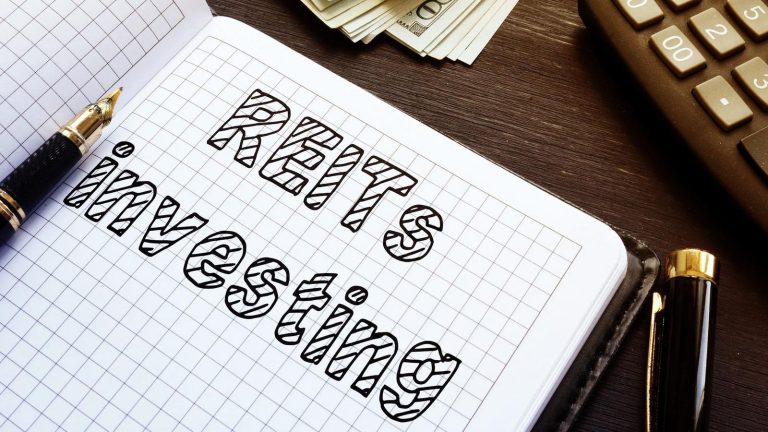 REITs
investing
00
2
5
3
.